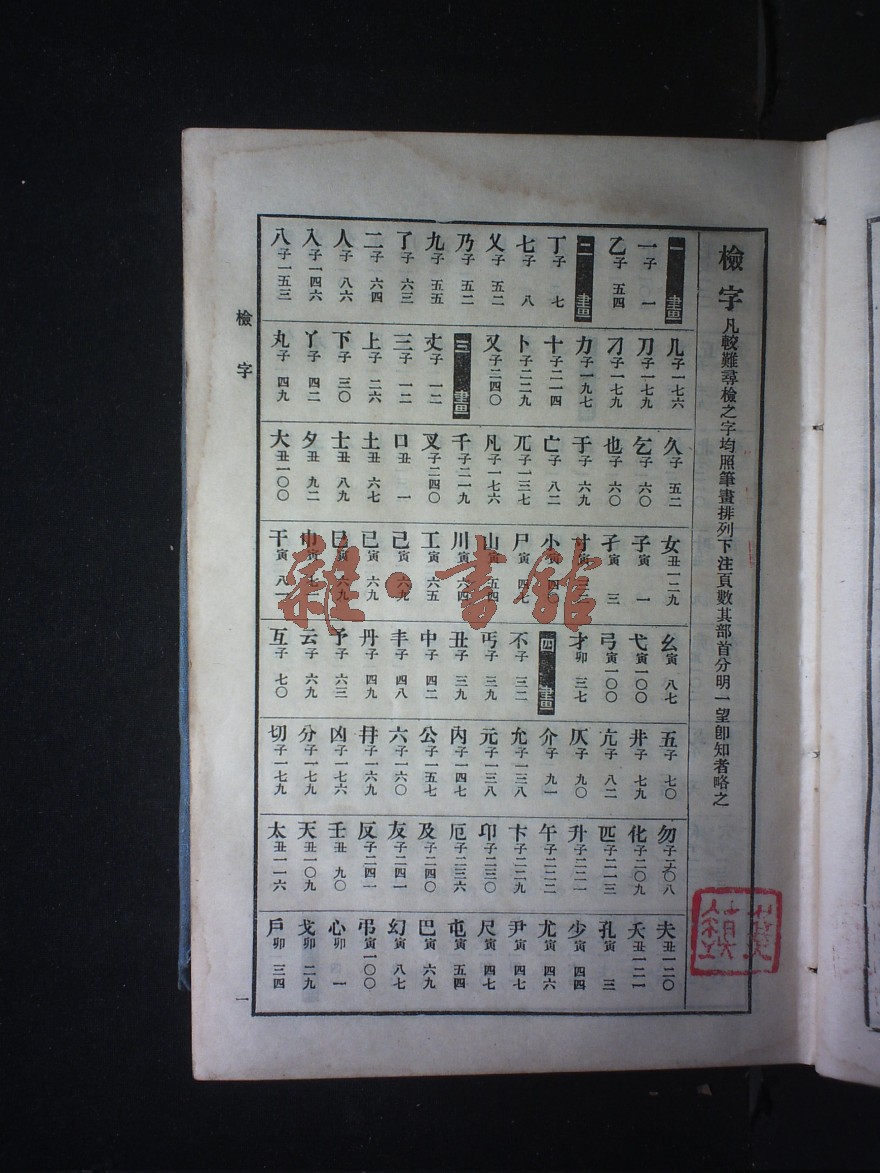 檢字 凡較難尋檢之字均照筆畫排列下注頁數其部首分明一望卽知者略之
一畫
一 子 一
乙 子 五四
二畫
丁 子 七
七 子 八
乂 子 五二
乃 子 五二
九 子 五五
了 子 六三
二 子 六四
人 子 八六
入 子一四六
八 子一五三
儿 子一七六
刀 子一七九
刁 子一七九
力 子一九七
十 子二一四
卜 子二二九
又 子二四〇
三畫
丈 子 一二
三 子 一二
上 子 二六
下 子 三〇
丫 子 四二
丸 子 四九
久 子 五二
乞 子 六〇
也 子 六〇
于 子 六九
亡 子 八二
兀 子一三七
凡 子一七六
千 子二一九
叉 子二四〇
口 丑 一
土 丑 六七
士 丑 八九
夕 丑 九二
大 丑一〇〇
女 丑一二九
子 寅 一
孑 寅 三
寸 寅
小 寅 四
尸 寅 四七
山 寅 五四
川 寅 六四
工 寅 六五
己 寅 六九
已 寅 六九
巳 寅 六九
巾 寅 七
干 寅 八一
幺 寅 八七
弋 寅一〇〇
弓 寅一〇〇
才 卯 三七
四畫
不 子 三二
丐 子 三九
丑 子 三九
中 子 四二
丰 子 四八
丹 子 四九
予 子 六三
云 子 六九
互 子 七〇
五 子 七〇
井 子 七九
亢 子 八二
仄 子 九〇
介 子 九一
允 子一三八
元 子一三八
內 子一四七
公 子一五七
六 子一六〇
冄 子一六九
凶 子一七六
分 子一七九
切 子一七九
勿 子二〇八
化 子二〇九
匹 子二一三
升 子二二一
午 子二二二
卞 子二二九
卬 子二三〇
厄 子二三六
及 子二四〇
友 子二四一
反 子二四一
壬 丑 九〇
天 丑一〇九
太 丑一一六
夫 丑一二〇
夭 丑一二一
孔 寅 三
少 寅 四四
尤 寅 四六
尹 寅 四七
尺 寅 四七
屯 寅 五四
巴 寅 六九
幻 寅 八七
弔 寅一〇〇
心 卯 一
戈 卯 二九
戶 卯 三四
檢字
一
雜·書館